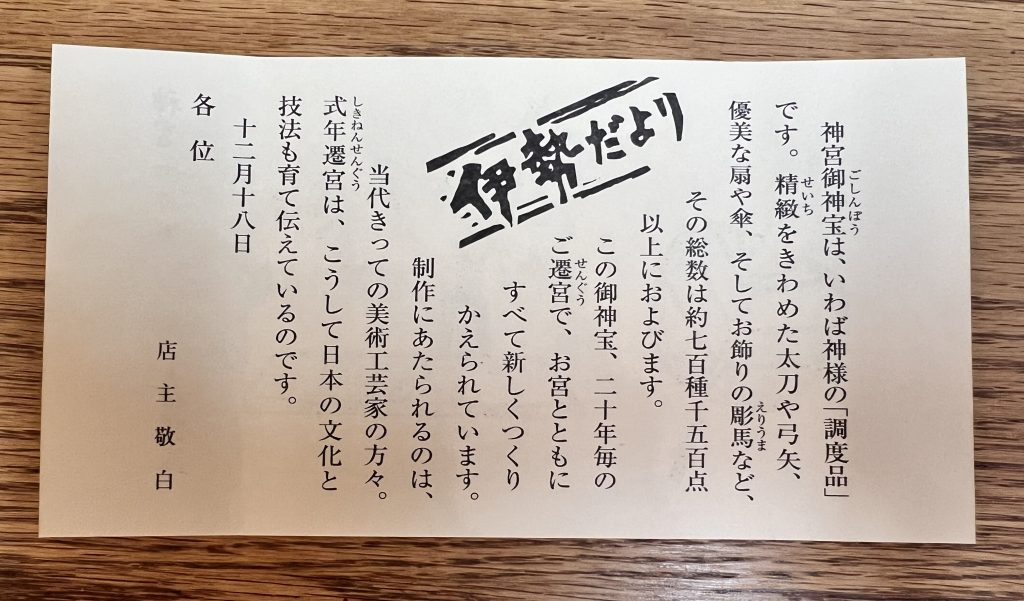 伊勢だより
神宮御神宝は、いわば神様の「調度品」
です。精緻をきわめた太刀や弓矢、
優美な扇や傘、そしてお飾りの彫馬など、
その総数は約七百種千五百点
以上におよびます。
この御神宝、二十年毎の
ご遷宮で、お宮とともに
すべて新しくつくり
かえられています。
制作にあたられるのは、
当代きっての美術工芸家の方々。
式年遷宮は、こうして日本の文化と
技法も育て伝えているのです。
十二月十八日
各位
店主敬白
ごしんぽう
せいち
えりうま
せんぐう
しきねんせんぐう